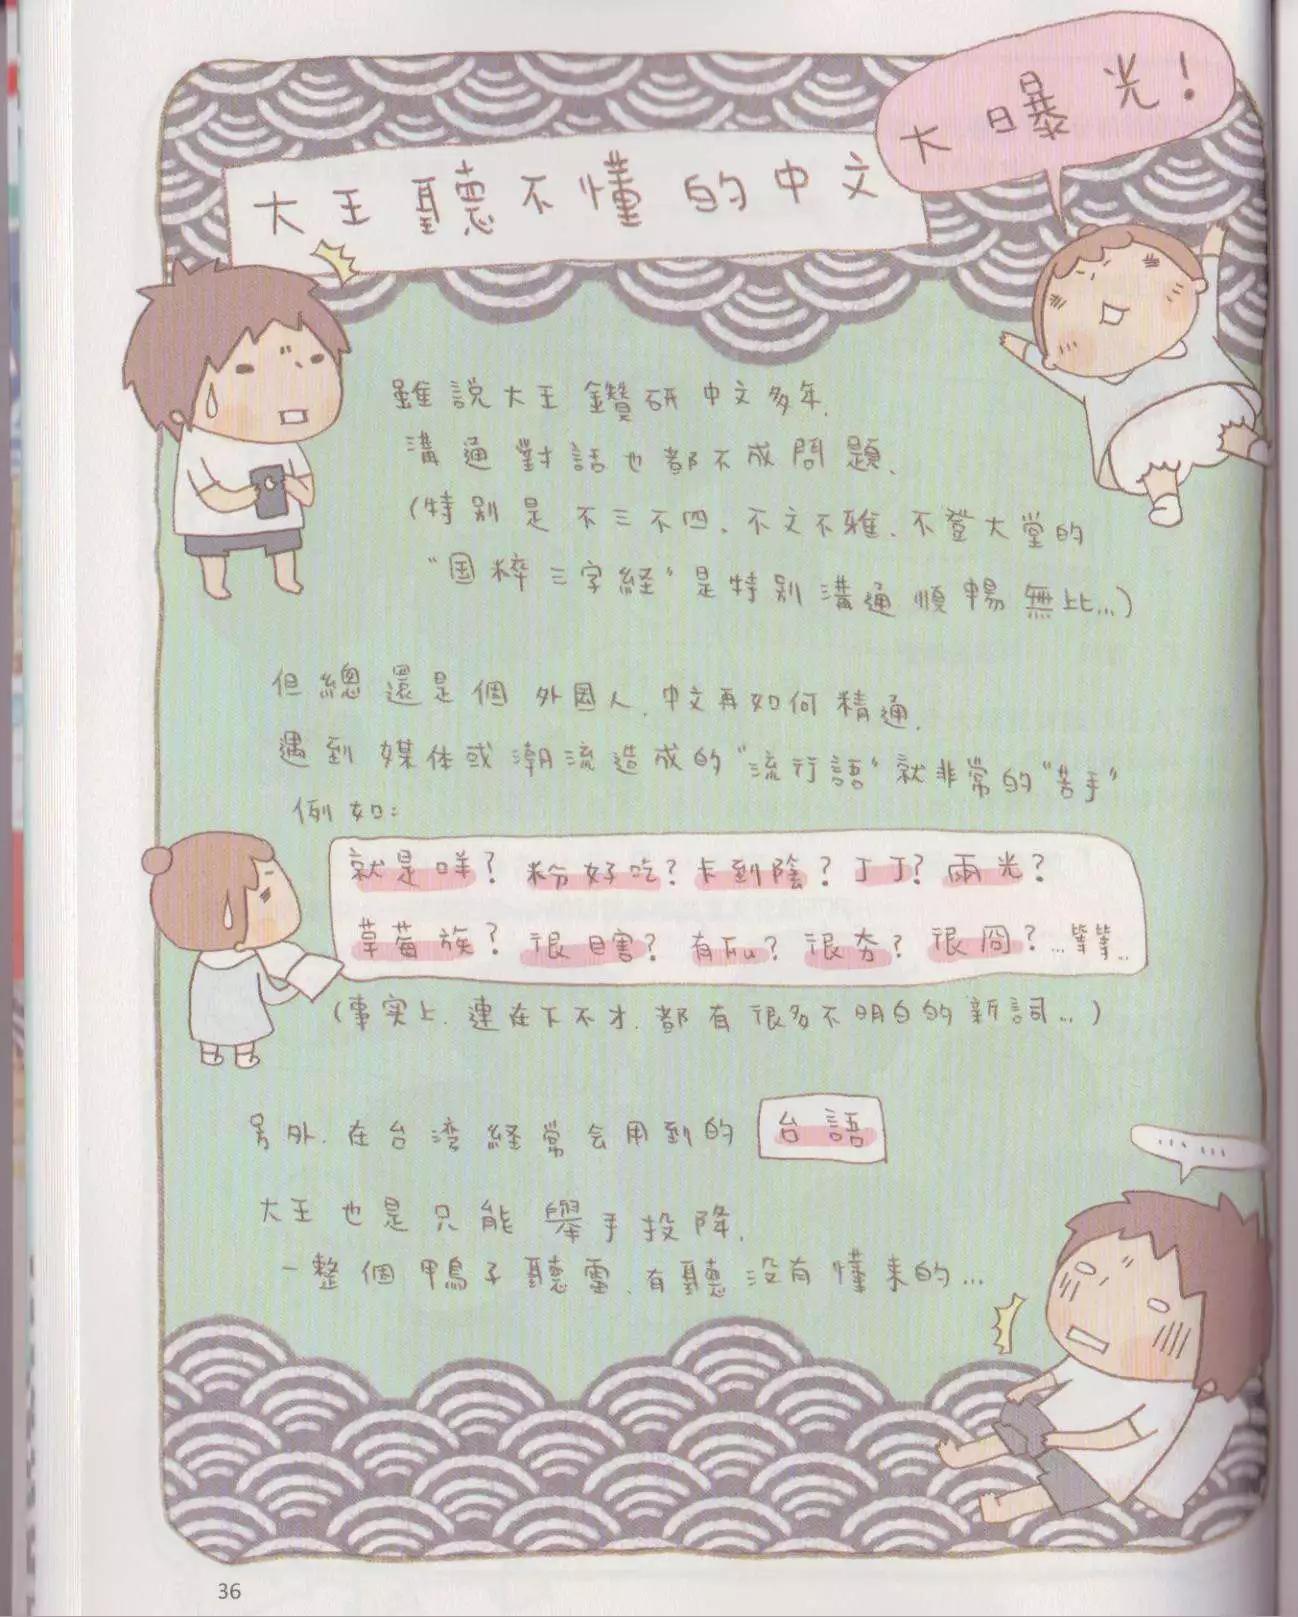 大曝光!
大王聽不懂的中文
雖說大王鑽研中文多年,
溝通對話也都不成問題,
(特別是不三不四、不文不雅、不登大堂的
“国粹三字経”是特別溝通順暢無比…)
但總還是個外國人,中文再如何精通,
遇到媒体或潮流造成的“流行語”就非常的“苦手”
例如:
就是咩?粉好吃?卡到陰?ㄎㄎ?兩光?
草莓族?很日害?有Fu?很夯?很冏?…等等…
(事实上,連在下不才,都有很多不明白的新詞…)
另外,在台湾経常会用到的 台語
大王也是只能舉手投降,
一整個鴨子聽雷,有聽沒有懂来的…
……
36